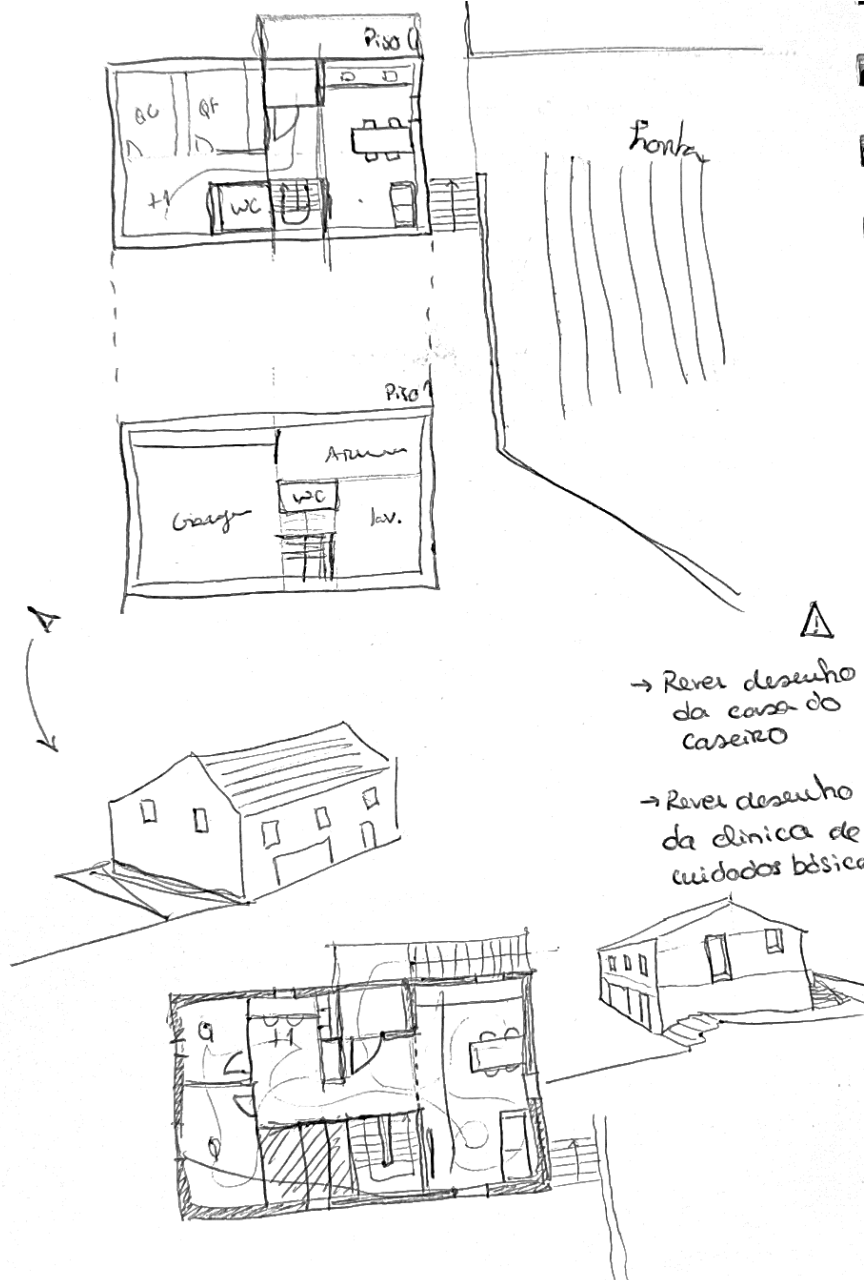 Piso 0
QC
QF
+1
WC
horta
Piso 1
WC
lav.
→ Rever desenho
da casa do
caseiro
→ Rever desenho
da clinica de
cuidados básico
Q
+1
Q